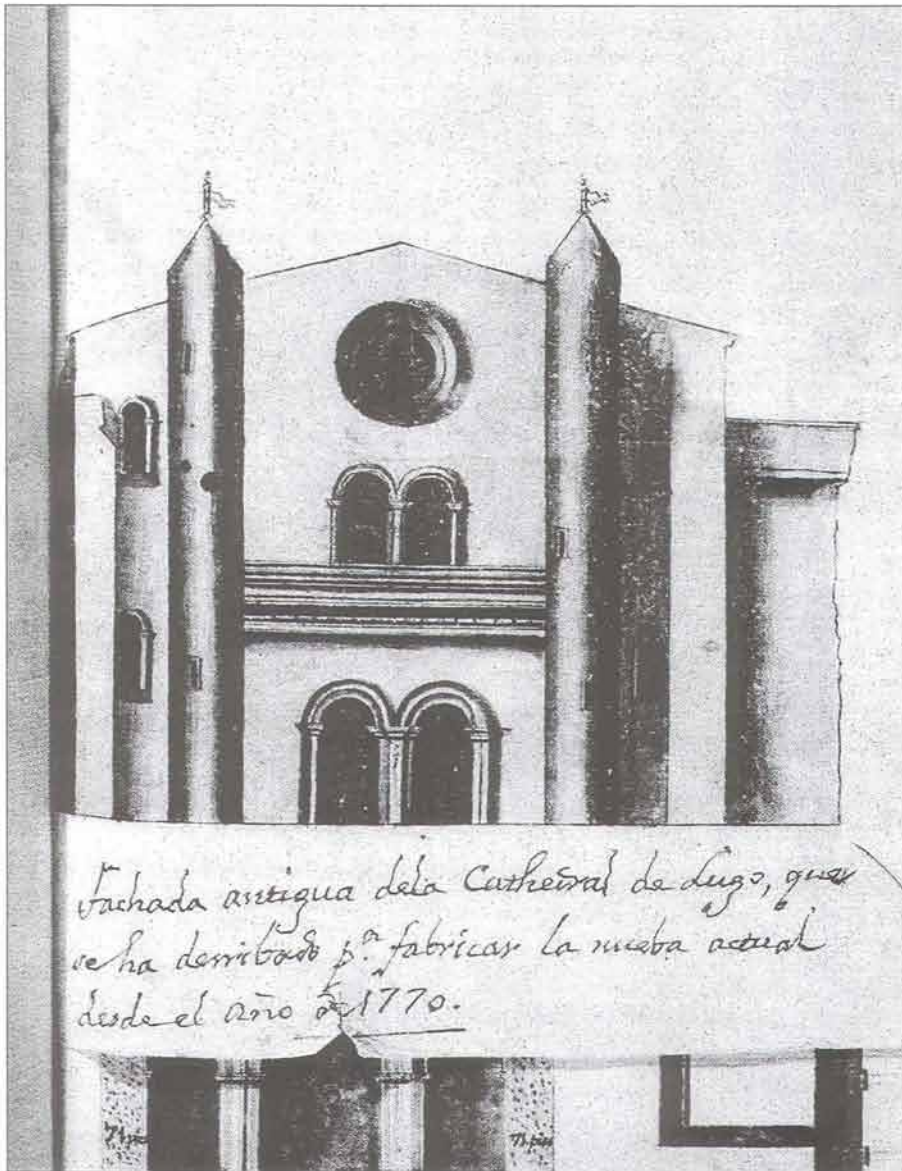 Fachada antigua dela Cathedral de Lugo, que
se ha derribado p.ª fabricar la nueba actual
desde el año de 1770.